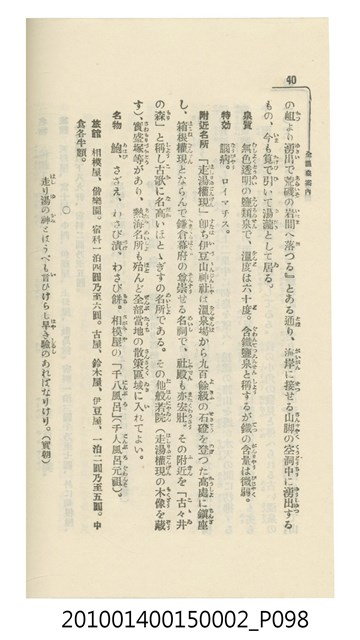 40
全國温泉案内
の組より湧出で荒磯の岩間へ落つる』とある通り、海岸に接せる山脚の空洞中に湧出する
もの、今も筧で引いて湯瀧として居る。
泉質 無色透明の鹽類泉で、溫度は六十度。含鐵鹽泉と稱するが鐵の含量は微弱。
特効 腦病。ロイマチス。
附近名所 「走湯權現」卽ち伊豆山神社は溫泉場から九百餘級の石磴を登つた高處に鎭座
し、箱根權現とならんで鎌倉幕府の尊崇せる名祠で、社殿も亦宏壯。その附近を「古々井
の森」と稱し古歌に名高いほとゝぎすの名所である。その他般若院（走湯權現の木像を藏
す）、實盛塚等があり、熱海名所も殆んど全部當地の散策區域に入れてよい。
名物 鮑、さざえ、わさび漬、わさび餅。相模屋の「千人風呂」（千人風呂元祖）。
旅館 相模屋、偕樂園。宿料一泊四圓乃至六圓。古屋、鈴木屋、伊豆屋、一泊二圓乃至五圓。中
食各半額。
○
走り湯の神とはうべも言ひけらし早き驗のあればなりけり。（實朝）
201001400150002_P098